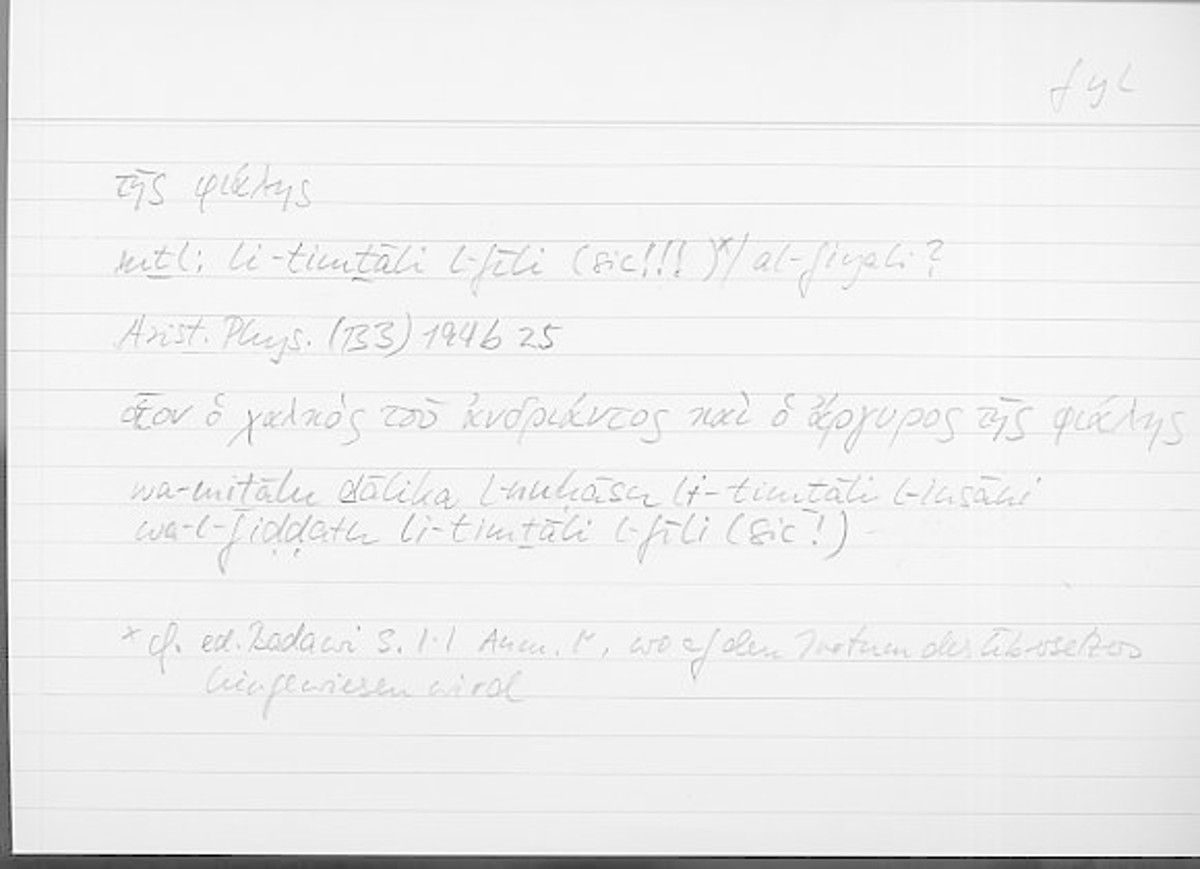 fyl
τῆς φιάλης
mṯl: li-timṯāli l-fīli (sic!!!)*/ al-fiyali?
Arist. Phys. (B3) 194b 25
οἷον ὁ χαλκὸς τοῦ ἀνδριάντος καὶ ὁ ἄργυρος τῆς φιάλης
wa-miṯālu ḏālika l-nuḥāsu li-timṯāli l-insāni
wa-l-fiḍḍatu li-timṯāli l-fīli (sic!)
* cf. ed. Badawi S. Anm. , wo auf den Irrtum des Übersetzers
hingewiesen wird